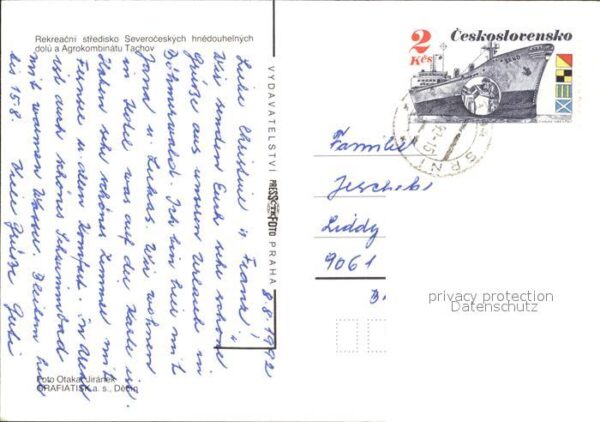 Rekreační středisko Severočeských hnědouhelných
dolů a Agrokombinátu Tachov
8.8.1992
Liebe Christine u. Franz!
Wir senden Euch sehr schöne
Grüße aus unserem Urlaub im
Böhmerwald. Ich bin hier mit
Jana u. Lukas. Wir wohnen
im Hotel was auf der Karte ist.
Haben sehr schönes Zimmer mit
Fernse u. allem Komfort. In der
ist auch schönes Schwimmbad
mit warmen Wasser. Bleiben hier
bis 15.8. Viele Grüße Gabi
Foto Otakar Jiránek
GRAFIATISK a. s., Děčín
VYDAVATELSTVÍ PRESSFOTO PRAHA
2 Kčs
Československo
Familie
Jeschek
Liddy
9061
privacy protection
Datenschutz